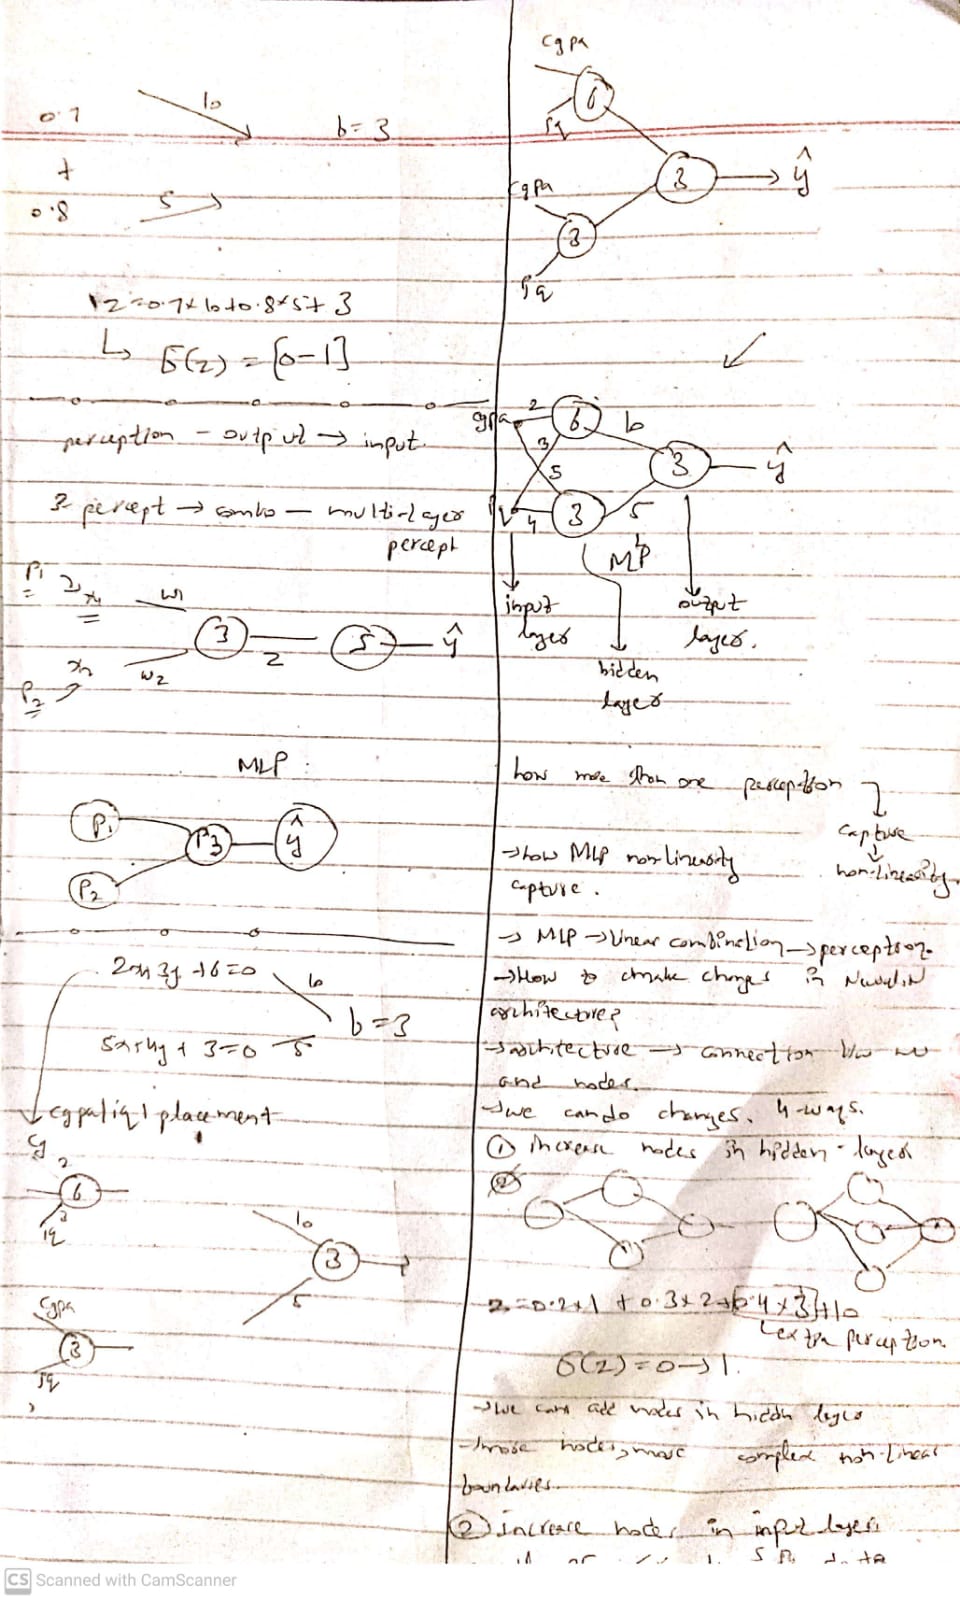 0.7
10
b=3
+
0.8
5
z=0.7*10+0.8*5+3
↳ σ(z) = [0-1]
perception - output → input.
3 percept → combo - multi-layer
percept
P1
x1
w1
3
2
5
ŷ
x2
w2
P2
MLP :
P1
P3
ŷ
P2
2x+3y+6=0
10
b=3
5x+4y+3=0
5
cgpa|iq|placement
cg
2
6
iq
3
10
3
5
cgpa
3
iq
cgpa
6
iq
3
ŷ
cgpa
3
iq
cgpa
2
6
10
3
5
3
ŷ
4
3
5
MLP
input
layer
output
layer.
hidden
layer
how more than one perception
capture
non-linearity
→how MLP non linearity
capture.
→ MLP → linear combination → perceptron.
→How to make changes in Neural N
architecture?
→architecture → connection b/w
and nodes.
→we can do changes. 4-ways.
① increase nodes in hidden-layer
②
z=0.2*1 + 0.3*2+0.4*3+10
extra perception
σ(z)=0→1.
→we can add nodes in hiddn layer
→more nodes, more complex non-linear
boundaries.
② increase nodes in input layer.
data
CS Scanned with CamScanner